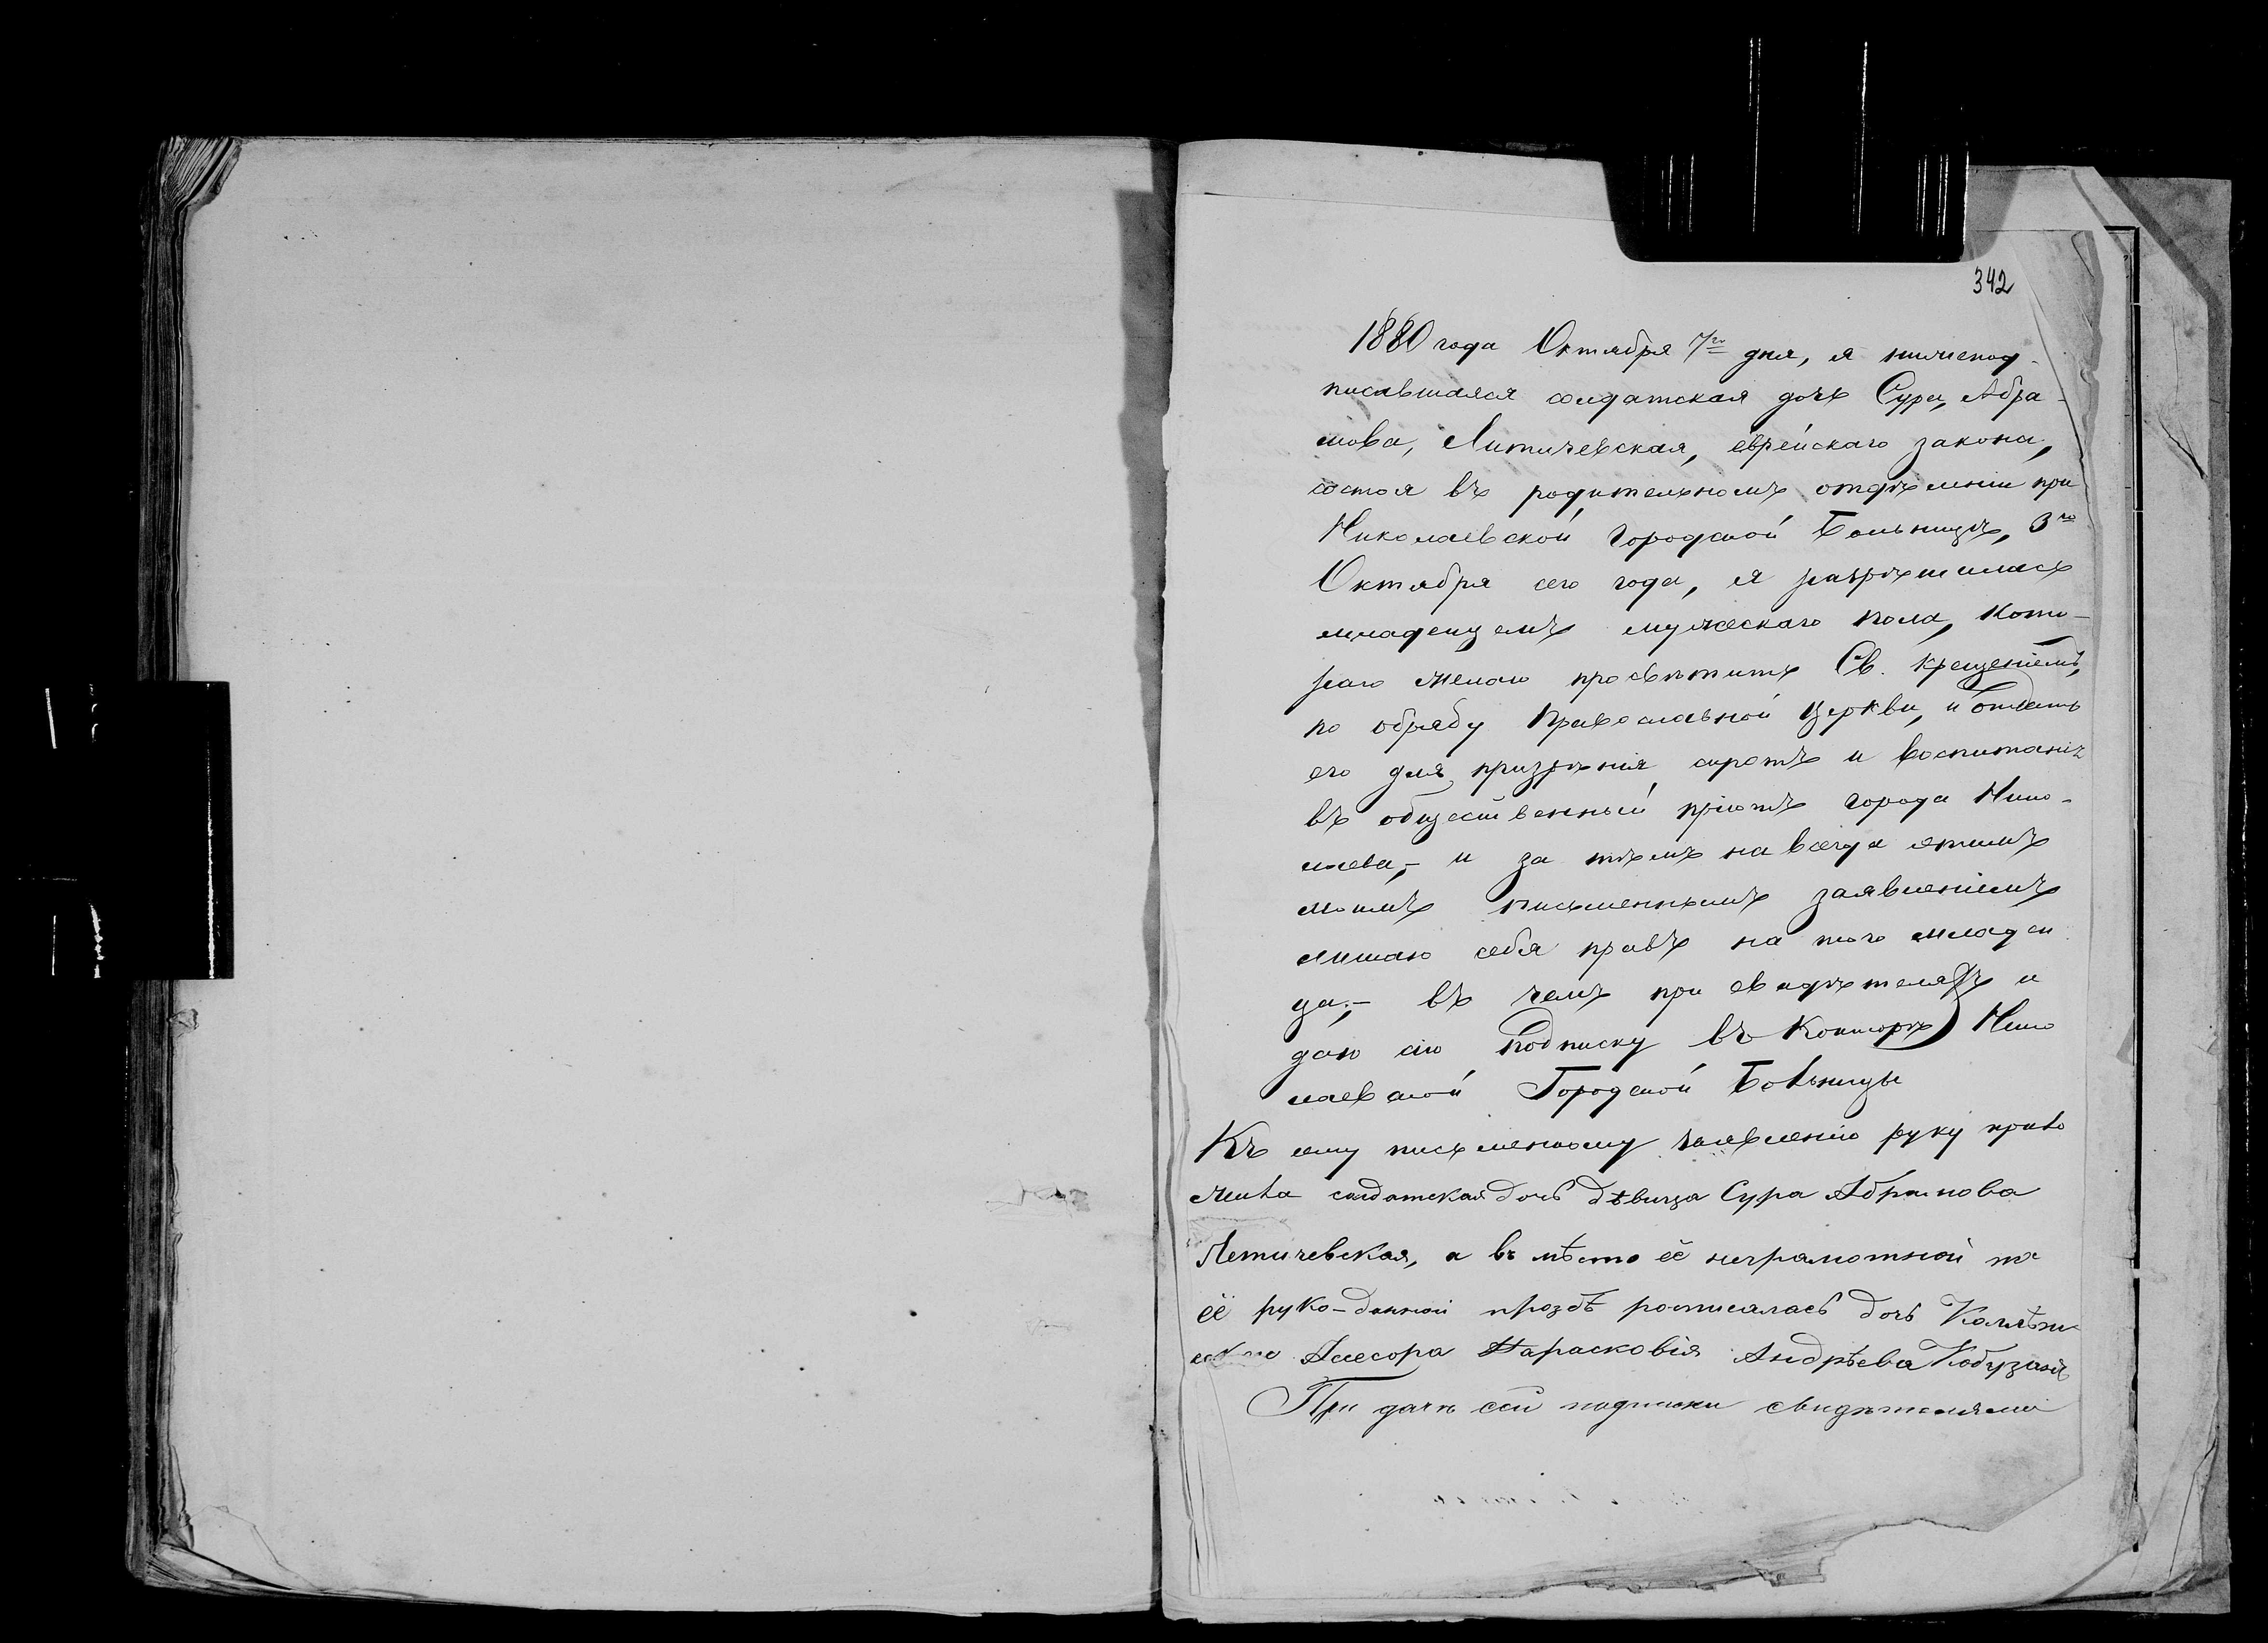 342
1880 года Октября 7го дня, я нижепод-
писавшаяся солдатская дочь Сура, Абра-
мова, Литичевская, еврейскаго закона,
состоя въ родительномъ отдѣленіи при
Николаевской Городской Больницѣ, 3го
Октября сего года, я разрѣшилась
младенцемъ мужескаго пола, кото-
раго желаю просвѣтить Св. крещеніемъ,
по обряду Православной Церкви, и отдать
его для призрѣнія сиротъ и воспитанія
въ общественный пріютъ города Нико-
лаева,- и за тѣмъ на всегда этимъ
моимъ письменнымъ заявленіемъ
лишаю себя правъ на того младен
ца,- въ чемъ при свидѣтеляхъ и
даю сію подписку въ Конторѣ Нико
лаевской Городской Больницы
Къ сему письменному заявленію руку прило
жила солдатская дочь дѣвица Сура Абрамова
Летичевская, а въ мѣсто её неграмотной по
её руко-данной прозбѣ росписалась дочь Коллѣж
Асесора Парасковія Андрѣева
При дачѣ сей подписки свидѣтелями